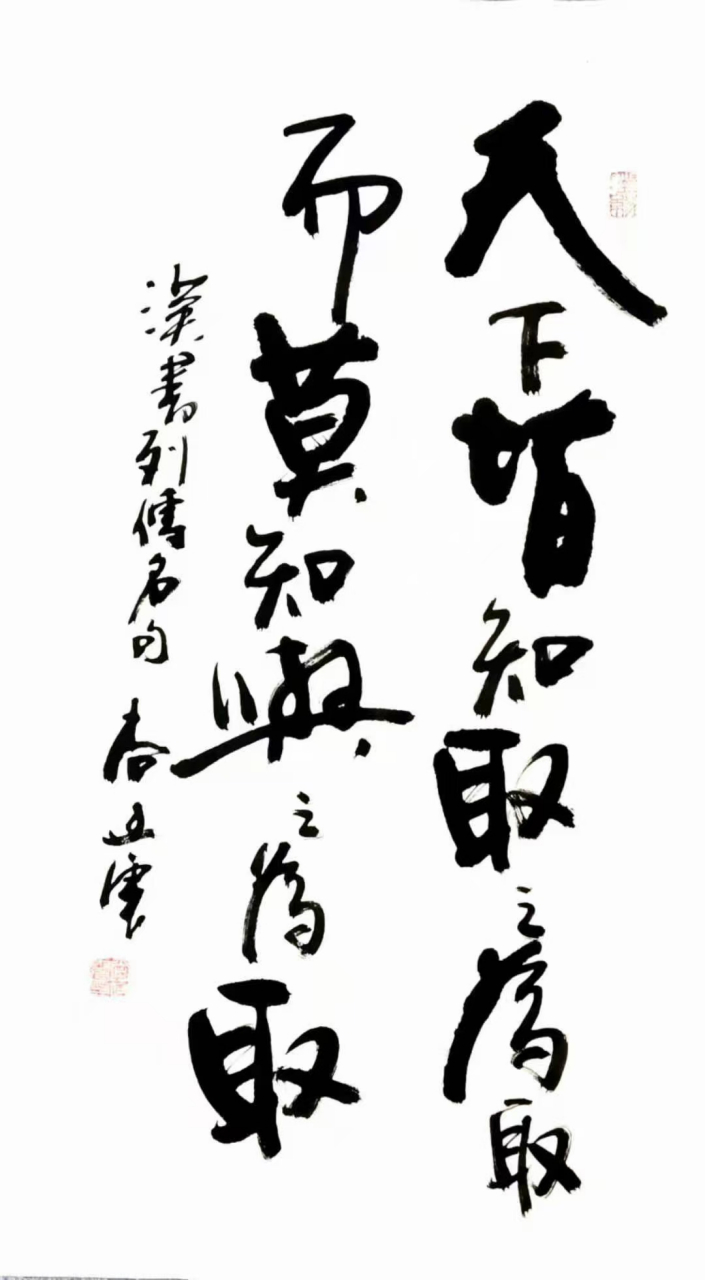 天下皆知取之為取
而莫知與之為取
漢書列傳名句